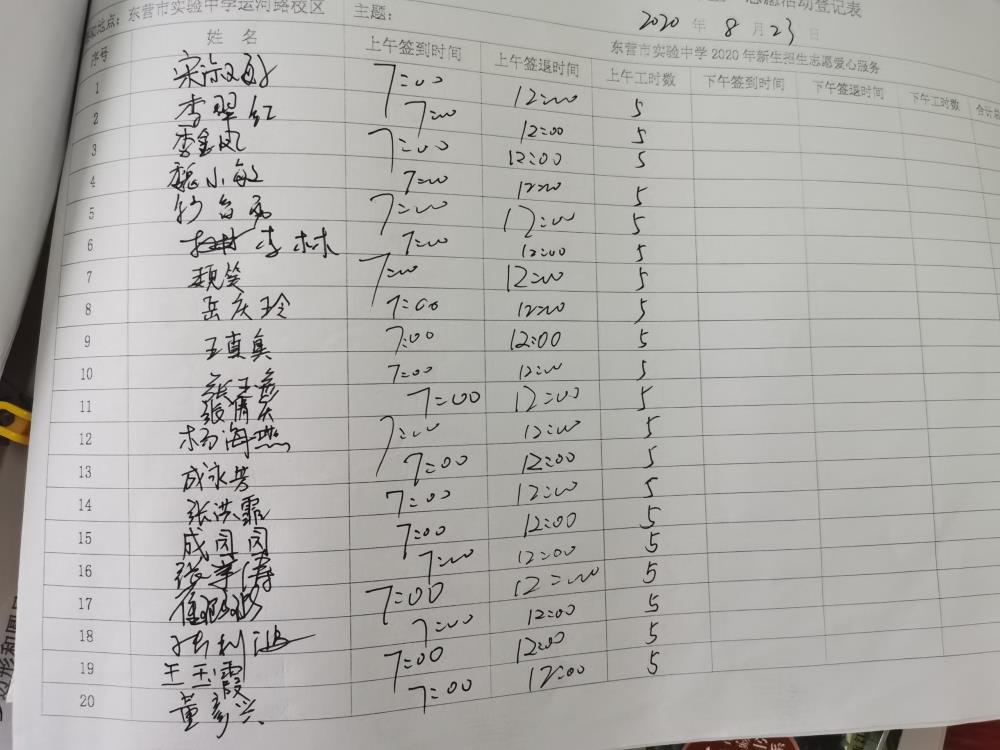 志愿活动登记表
东营市实验中学运河路校区 主题: 2020 年 8 月 23 日
东营市实验中学 2020 年新生招生志愿爱心服务
序号 姓 名 上午签到时间 上午签退时间 上午工时数 下午签到时间 下午签退时间 下午工时数
1 宋淑敏 7:00 12:00 5
2 李翠红 7:00 12:00 5
3 李金凤 7:00 12:00 5
4 魏小敏 7:00 12:00 5
5 7:00 12:00 5
6 李林 7:00 12:00 5
7 魏笑 7:00 12:00 5
8 岳庆玲 7:00 12:00 5
9 王真真 7:00 12:00 5
10 7:00 12:00 5
11 张倩 7:00 12:00 5
12 杨海燕 7:00 12:00 5
13 成冰芳 7:00 12:00 5
14 张洪霞 7:00 12:00 5
15 成园园 7:00 12:00 5
16 张 7:00 12:00 5
17 7:00 12:00 5
18 7:00 12:00 5
19 王玉霞 7:00 12:00 5
20 董彦兴 7:00 12:00